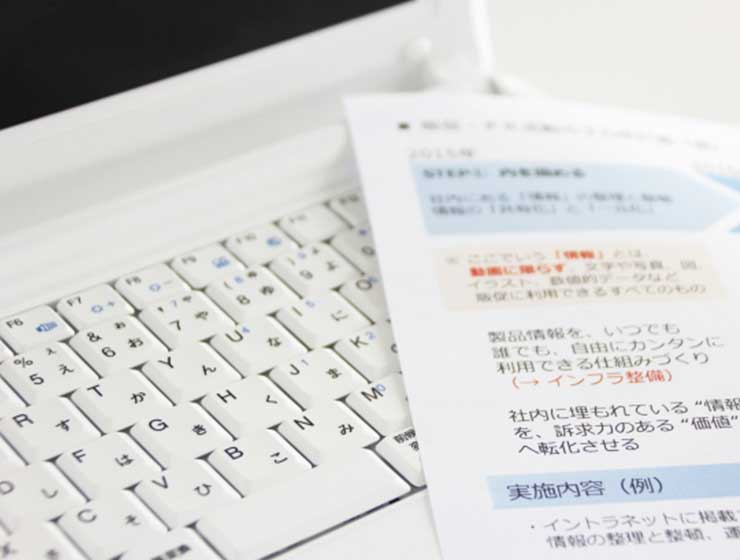 2015年
STEP1 内を固める
社内にある「情報」の整理と整頓
情報の「共有化」と「一元化」
※ ここでいう「情報」とは
動画に限らず、文字や写真、図、
イラスト、数値的データなど
販促に利用できるすべてのもの
製品情報を、いつでも
誰でも、自由にカンタンに
利用できる仕組みづくり
（→ インフラ整備）
社内に埋もれている“情報
を、訴求力のある“価値”
へ転化させる
実施内容（例）
・イントラネットに掲載
情報の整理と整頓、運
F6 F7 F8 F9 F10
% 5 ぇ え & 6 ぉ お 7 ゃ や 8 ゅ ゆ 9 ょ よ
R す T か Y ん U な 4 I に 5
F は G き H く J ま 1 K の 2
C そ V ひ B こ N み M も 0
D し